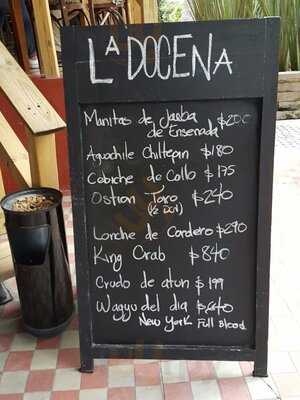 LA DOCENA
Manitas de Jaeba $200
de Ensenada
Aguachile Chiltepin $180
Cebiche de Callo $175
Ostion Toro $240
(½ DOC)
Lonche de Cordero $290
King Crab $840
Crudo de atun $199
Wagyu del dia $640
New York Full Blood